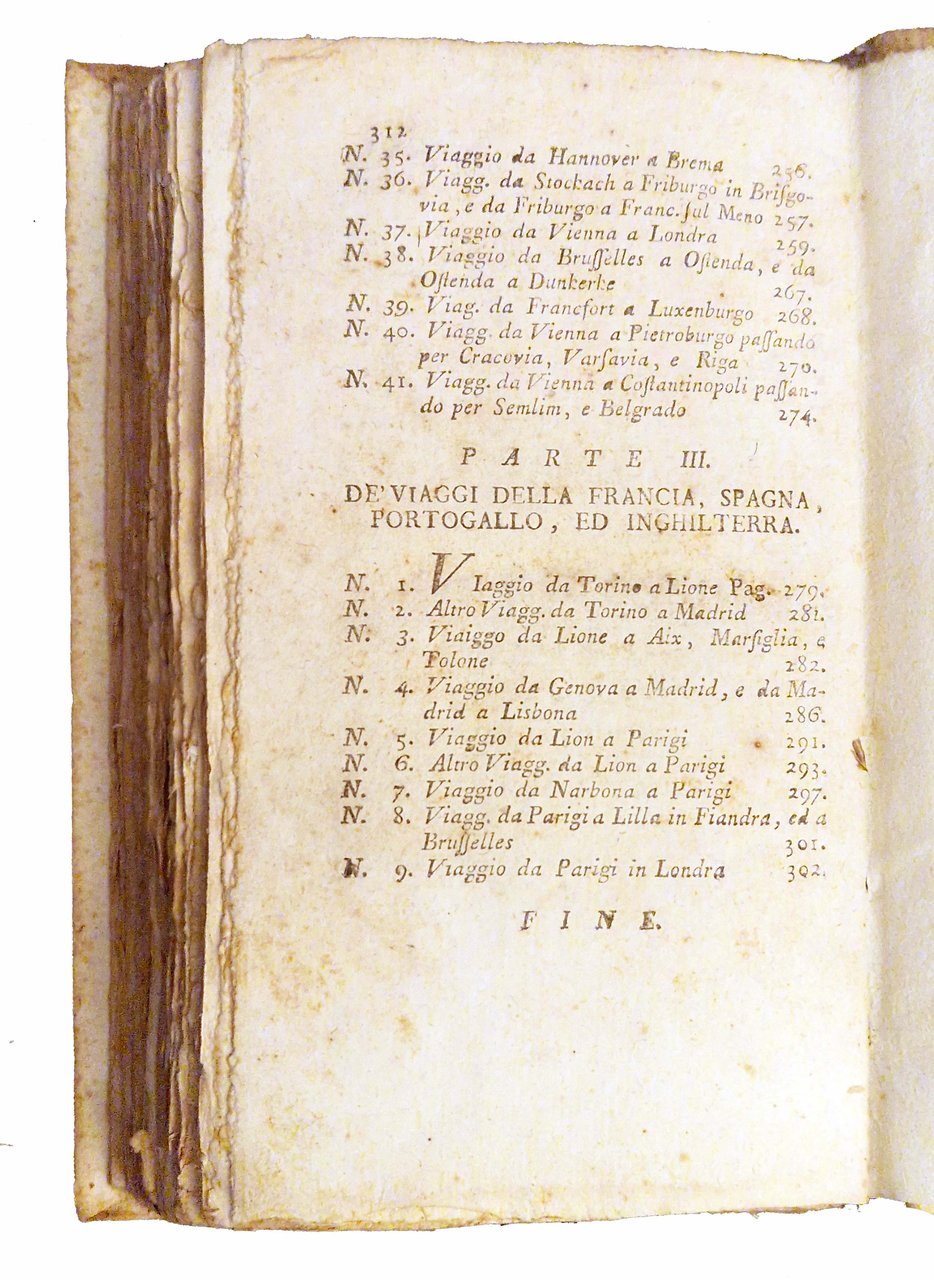 312
N. 35. Viaggio da Hannover a Brema 256.
N. 36. Viagg. da Stockach a Friburgo in Briſgo-
via, e da Friburgo a Franc. ſul Meno 257.
N. 37. Viaggio da Vienna a Londra 259.
N. 38. Viaggio da Bruſſelles a Oſtenda, e da
Oſtenda a Dunkerke 267.
N. 39. Viag. da Francfort a Luxenburgo 268.
N. 40. Viagg. da Vienna a Pietroburgo paſſando
per Cracovia, Varſavia, e Riga 270.
N. 41. Viagg. da Vienna a Coſtantinopoli paſſan-
do per Semlim, e Belgrado 274.
PARTE III.
DE' VIAGGI DELLA FRANCIA, SPAGNA,
PORTOGALLO, ED INGHILTERRA.
N. 1. VIaggio da Torino a Lione Pag. 279.
N. 2. Altro Viagg. da Torino a Madrid 281.
N. 3. Viaiggo da Lione a Aix, Marſiglia, e
Tolone 282.
N. 4. Viaggio da Genova a Madrid, e da Ma-
drid a Lisbona 286.
N. 5. Viaggio da Lion a Parigi 291.
N. 6. Altro Viagg. da Lion a Parigi 293.
N. 7. Viaggio da Narbona a Parigi 297.
N. 8. Viagg. da Parigi a Lilla in Fiandra, ed a
Bruſſelles 301.
N. 9. Viaggio da Parigi in Londra 302.
FINE.